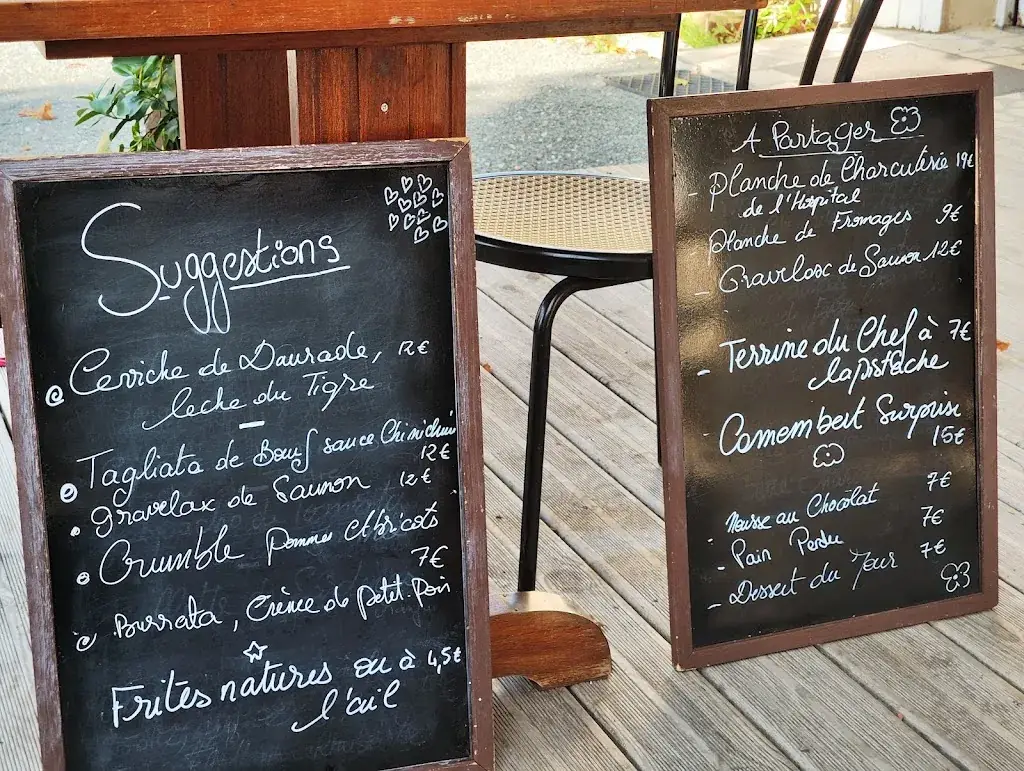 Suggestions
Ceviche de Daurade, 12€
leche du Tigre
Tagliata de Bœuf sauce Chimichuri
12€
gravelax de Saumon 12€
Crumble pommes Abricots
7€
Burrata, Crème de petit pois
Frites natures ou à 4,5€
l'ail
A Partager
- Planche de Charcuterie 19€
de l'Hopital
Planche de Fromages 9€
- Gravelax de Saumon 12€
- Terrine du Chef à 7€
la pistache
- Camembert Surprise
15€
- Mousse au Chocolat 7€
- Pain Perdu 7€
- Dessert du Jour 7€